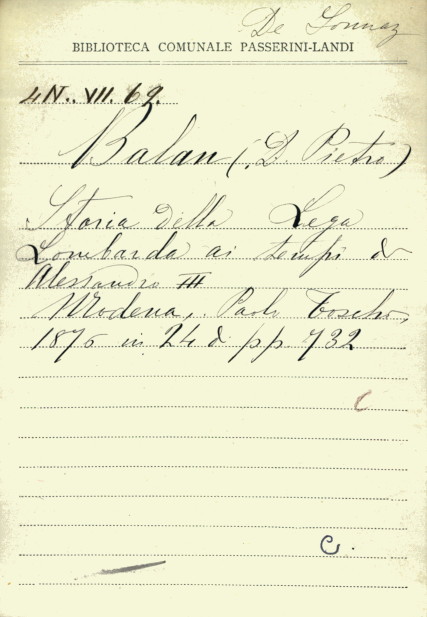 De Sonnaz
BIBLIOTECA COMUNALE PASSERINI-LANDI
4N. VII. 69.
Balan (D. Pietro)
Storia della Lega
Lombarda ai tempi di
Alessandro III
Modena, Paolo Toschi,
1876 in 24 di pp. 732
C
C.